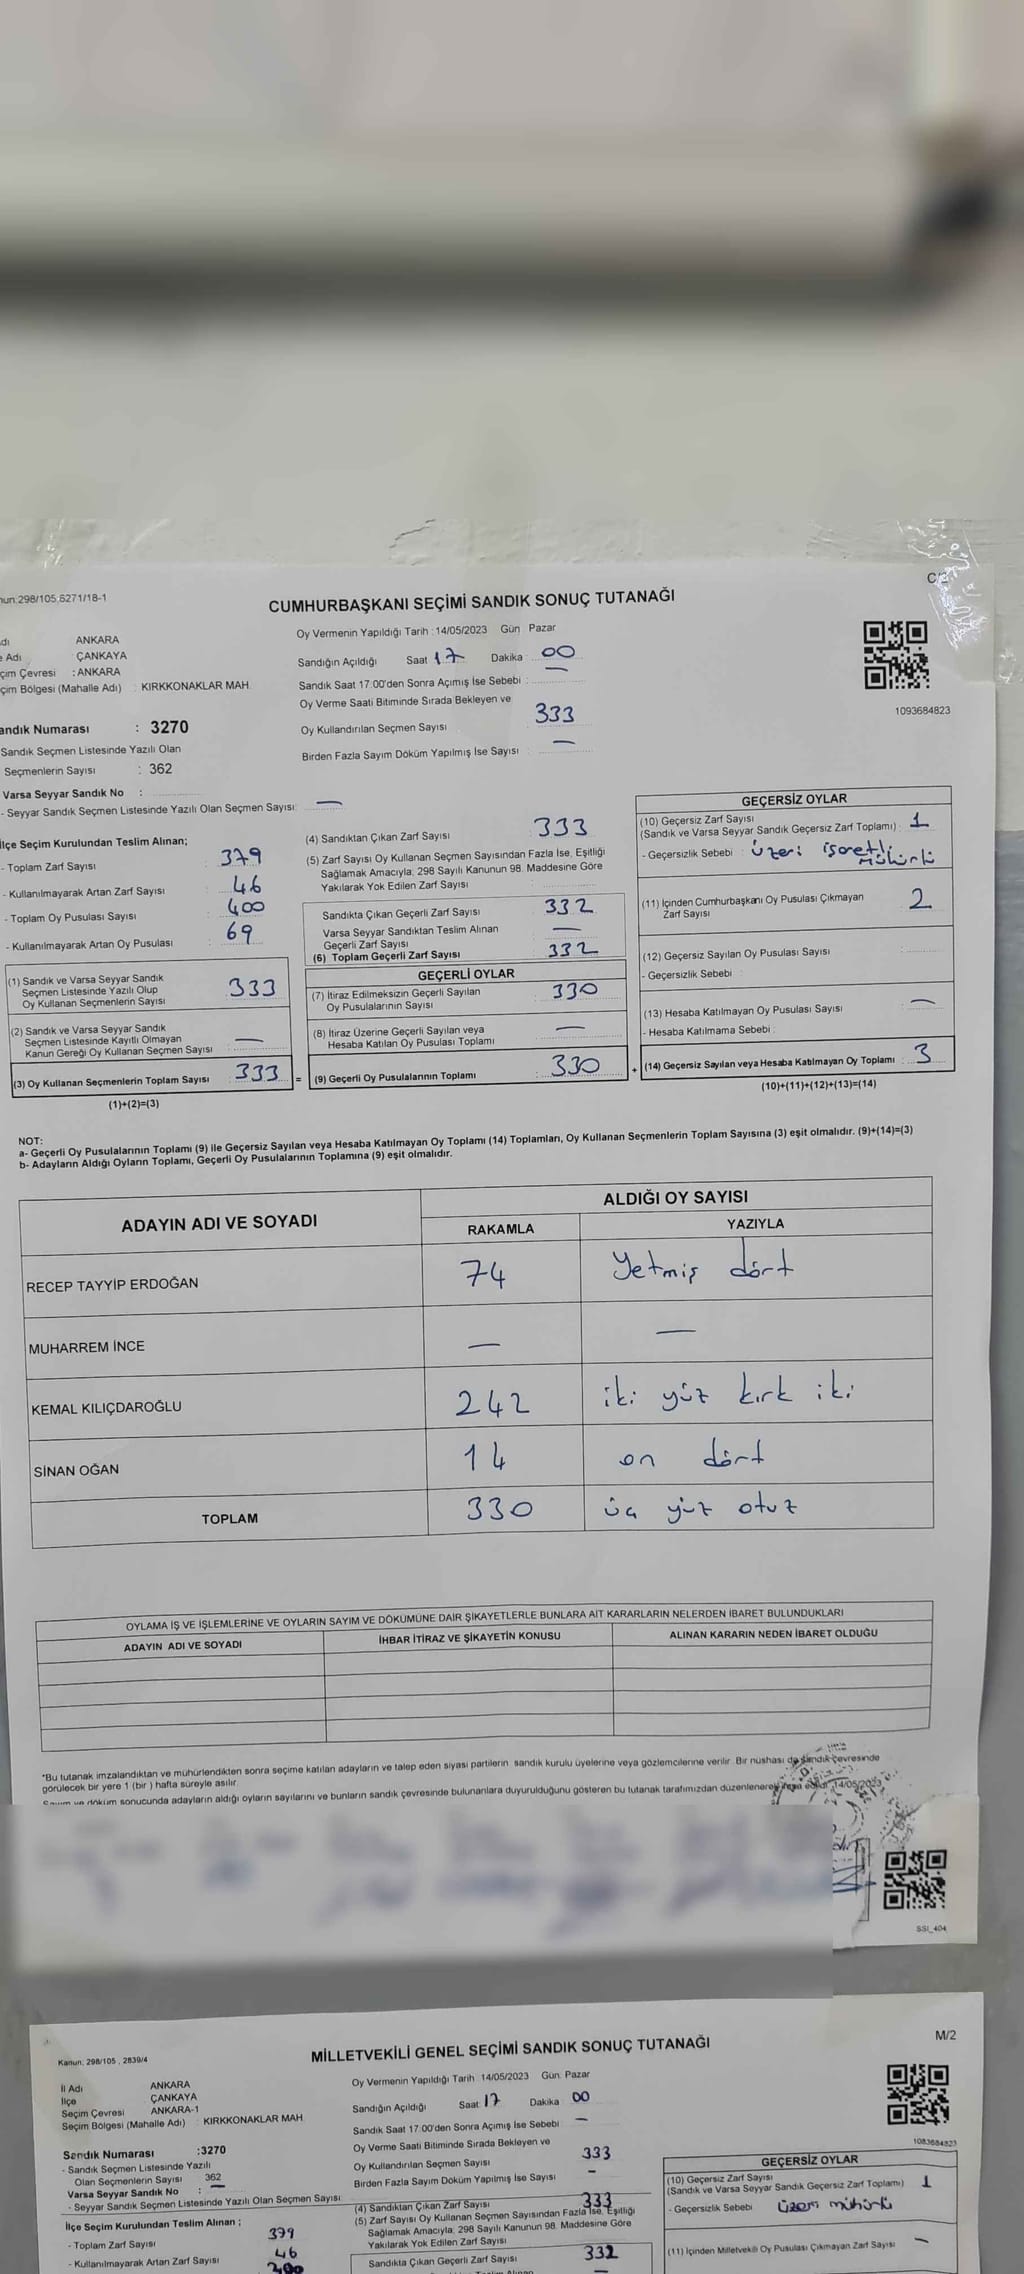 298/105,6271/18-1
C/2
CUMHURBAŞKANI SEÇİMİ SANDIK SONUÇ TUTANAĞI
ANKARA
Adı ÇANKAYA
Çevresi : ANKARA
Bölgesi (Mahalle Adı) : KIRKKONAKLAR MAH.
Oy Vermenin Yapıldığı Tarih :14/05/2023 Gün Pazar
Sandığın Açıldığı Saat 17 Dakika 00
Sandık Saat 17:00'den Sonra Açımış İse Sebebi : —
Oy Verme Saati Bitiminde Sırada Bekleyen ve
Oy Kullandırılan Seçmen Sayısı 333
Birden Fazla Sayım Döküm Yapılmış İse Sayısı —
1093684823
Numarası : 3270
Sandık Seçmen Listesinde Yazılı Olan
Seçmenlerin Sayısı : 362
Varsa Seyyar Sandık No :
- Seyyar Sandık Seçmen Listesinde Yazılı Olan Seçmen Sayısı: —
İlçe Seçim Kurulundan Teslim Alınan;
- Toplam Zarf Sayısı 379
- Kullanılmayarak Artan Zarf Sayısı : 46
- Toplam Oy Pusulası Sayısı : 400
- Kullanılmayarak Artan Oy Pusulası : 69
(1) Sandık ve Varsa Seyyar Sandık
Seçmen Listesinde Yazılı Olup
Oy Kullanan Seçmenlerin Sayısı 333
(2) Sandık ve Varsa Seyyar Sandık
Seçmen Listesinde Kayıtlı Olmayan
Kanun Gereği Oy Kullanan Seçmen Sayısı : —
(3) Oy Kullanan Seçmenlerin Toplam Sayısı : 333 =
(1)+(2)=(3)
(4) Sandıktan Çıkan Zarf Sayısı 333
(5) Zarf Sayısı Oy Kullanan Seçmen Sayısından Fazla İse, Eşitliği
Sağlamak Amacıyla, 298 Sayılı Kanunun 98. Maddesine Göre
Yakılarak Yok Edilen Zarf Sayısı
Sandıkta Çıkan Geçerli Zarf Sayısı 332
Varsa Seyyar Sandıktan Teslim Alınan
Geçerli Zarf Sayısı —
(6) Toplam Geçerli Zarf Sayısı 332
GEÇERLİ OYLAR
(7) İtiraz Edilmeksizin Geçerli Sayılan
Oy Pusulalarının Sayısı : 330
(8) İtiraz Üzerine Geçerli Sayılan veya
Hesaba Katılan Oy Pusulası Toplamı : —
(9) Geçerli Oy Pusulalarının Toplamı : 330 +
GEÇERSİZ OYLAR
(10) Geçersiz Zarf Sayısı
(Sandık ve Varsa Seyyar Sandık Geçersiz Zarf Toplamı) : 1
- Geçersizlik Sebebi : üzeri işaretli
mühürlü
(11) İçinden Cumhurbaşkanı Oy Pusulası Çıkmayan
Zarf Sayısı 2
(12) Geçersiz Sayılan Oy Pusulası Sayısı
- Geçersizlik Sebebi :
(13) Hesaba Katılmayan Oy Pusulası Sayısı : —
- Hesaba Katılmama Sebebi :
(14) Geçersiz Sayılan veya Hesaba Katılmayan Oy Toplamı : 3
(10)+(11)+(12)+(13)=(14)
NOT:
a- Geçerli Oy Pusulalarının Toplamı (9) ile Geçersiz Sayılan veya Hesaba Katılmayan Oy Toplamı (14) Toplamları, Oy Kullanan Seçmenlerin Toplam Sayısına (3) eşit olmalıdır. (9)+(14)=(3)
b- Adayların Aldığı Oyların Toplamı, Geçerli Oy Pusulalarının Toplamına (9) eşit olmalıdır.
ADAYIN ADI VE SOYADI
ALDIĞI OY SAYISI
RAKAMLA YAZIYLA
RECEP TAYYİP ERDOĞAN 74 Yetmiş dört
MUHARREM İNCE — —
KEMAL KILIÇDAROĞLU 242 iki yüz kırk iki
SİNAN OĞAN 14 on dört
TOPLAM 330 üç yüz otuz
OYLAMA İŞ VE İŞLEMLERİNE VE OYLARIN SAYIM VE DÖKÜMÜNE DAİR ŞİKAYETLERLE BUNLARA AİT KARARLARIN NELERDEN İBARET BULUNDUKLARI
ADAYIN ADI VE SOYADI İHBAR İTİRAZ VE ŞİKAYETİN KONUSU ALINAN KARARIN NEDEN İBARET OLDUĞU
*Bu tutanak imzalandıktan ve mühürlendikten sonra seçime katılan adayların ve talep eden siyasi partilerin sandık kurulu üyelerine veya gözlemcilerine verilir. Bir nüshası da sandık çevresinde
görülecek bir yere 1 (bir ) hafta süreyle asılır.
Sayım ve döküm sonucunda adayların aldığı oyların sayılarını ve bunların sandık çevresinde bulunanlara duyurulduğunu gösteren bu tutanak tarafımızdan düzenlenerek 14/05/2023
SSI_404
Kanun; 298/105 , 2839/4
M/2
MİLLETVEKİLİ GENEL SEÇİMİ SANDIK SONUÇ TUTANAĞI
İl Adı ANKARA
İlçe ÇANKAYA
Seçim Çevresi ANKARA-1
Seçim Bölgesi (Mahalle Adı) : KIRKKONAKLAR MAH.
Oy Vermenin Yapıldığı Tarih 14/05/2023 Gün: Pazar
Sandığın Açıldığı Saat 17 Dakika 00
Sandık Saat 17:00'den Sonra Açımış İse Sebebi —
Oy Verme Saati Bitiminde Sırada Bekleyen ve
Oy Kullandırılan Seçmen Sayısı 333
Birden Fazla Sayım Döküm Yapılmış İse Sayısı —
1083684823
Sandık Numarası :3270
- Sandık Seçmen Listesinde Yazılı
Olan Seçmenlerin Sayısı 362
Varsa Seyyar Sandık No : —
- Seyyar Sandık Seçmen Listesinde Yazılı Olan Seçmen Sayısı:
İlçe Seçim Kurulundan Teslim Alınan ;
- Toplam Zarf Sayısı 379
- Kullanılmayarak Artan Zarf Sayısı 46
400
(4) Sandıktan Çıkan Zarf Sayısı 333
(5) Zarf Sayısı Oy Kullanan Seçmen Sayısından Fazla İse, Eşitliği
Sağlamak Amacıyla, 298 Sayılı Kanunun 98. Maddesine Göre
Yakılarak Yok Edilen Zarf Sayısı
Sandıkta Çıkan Geçerli Zarf Sayısı 332
GEÇERSİZ OYLAR
(10) Geçersiz Zarf Sayısı
(Sandık ve Varsa Seyyar Sandık Geçersiz Zarf Toplamı) 1
- Geçersizlik Sebebi üzeri mühürlü
(11) İçinden Milletvekili Oy Pusulası Çıkmayan Zarf Sayısı —